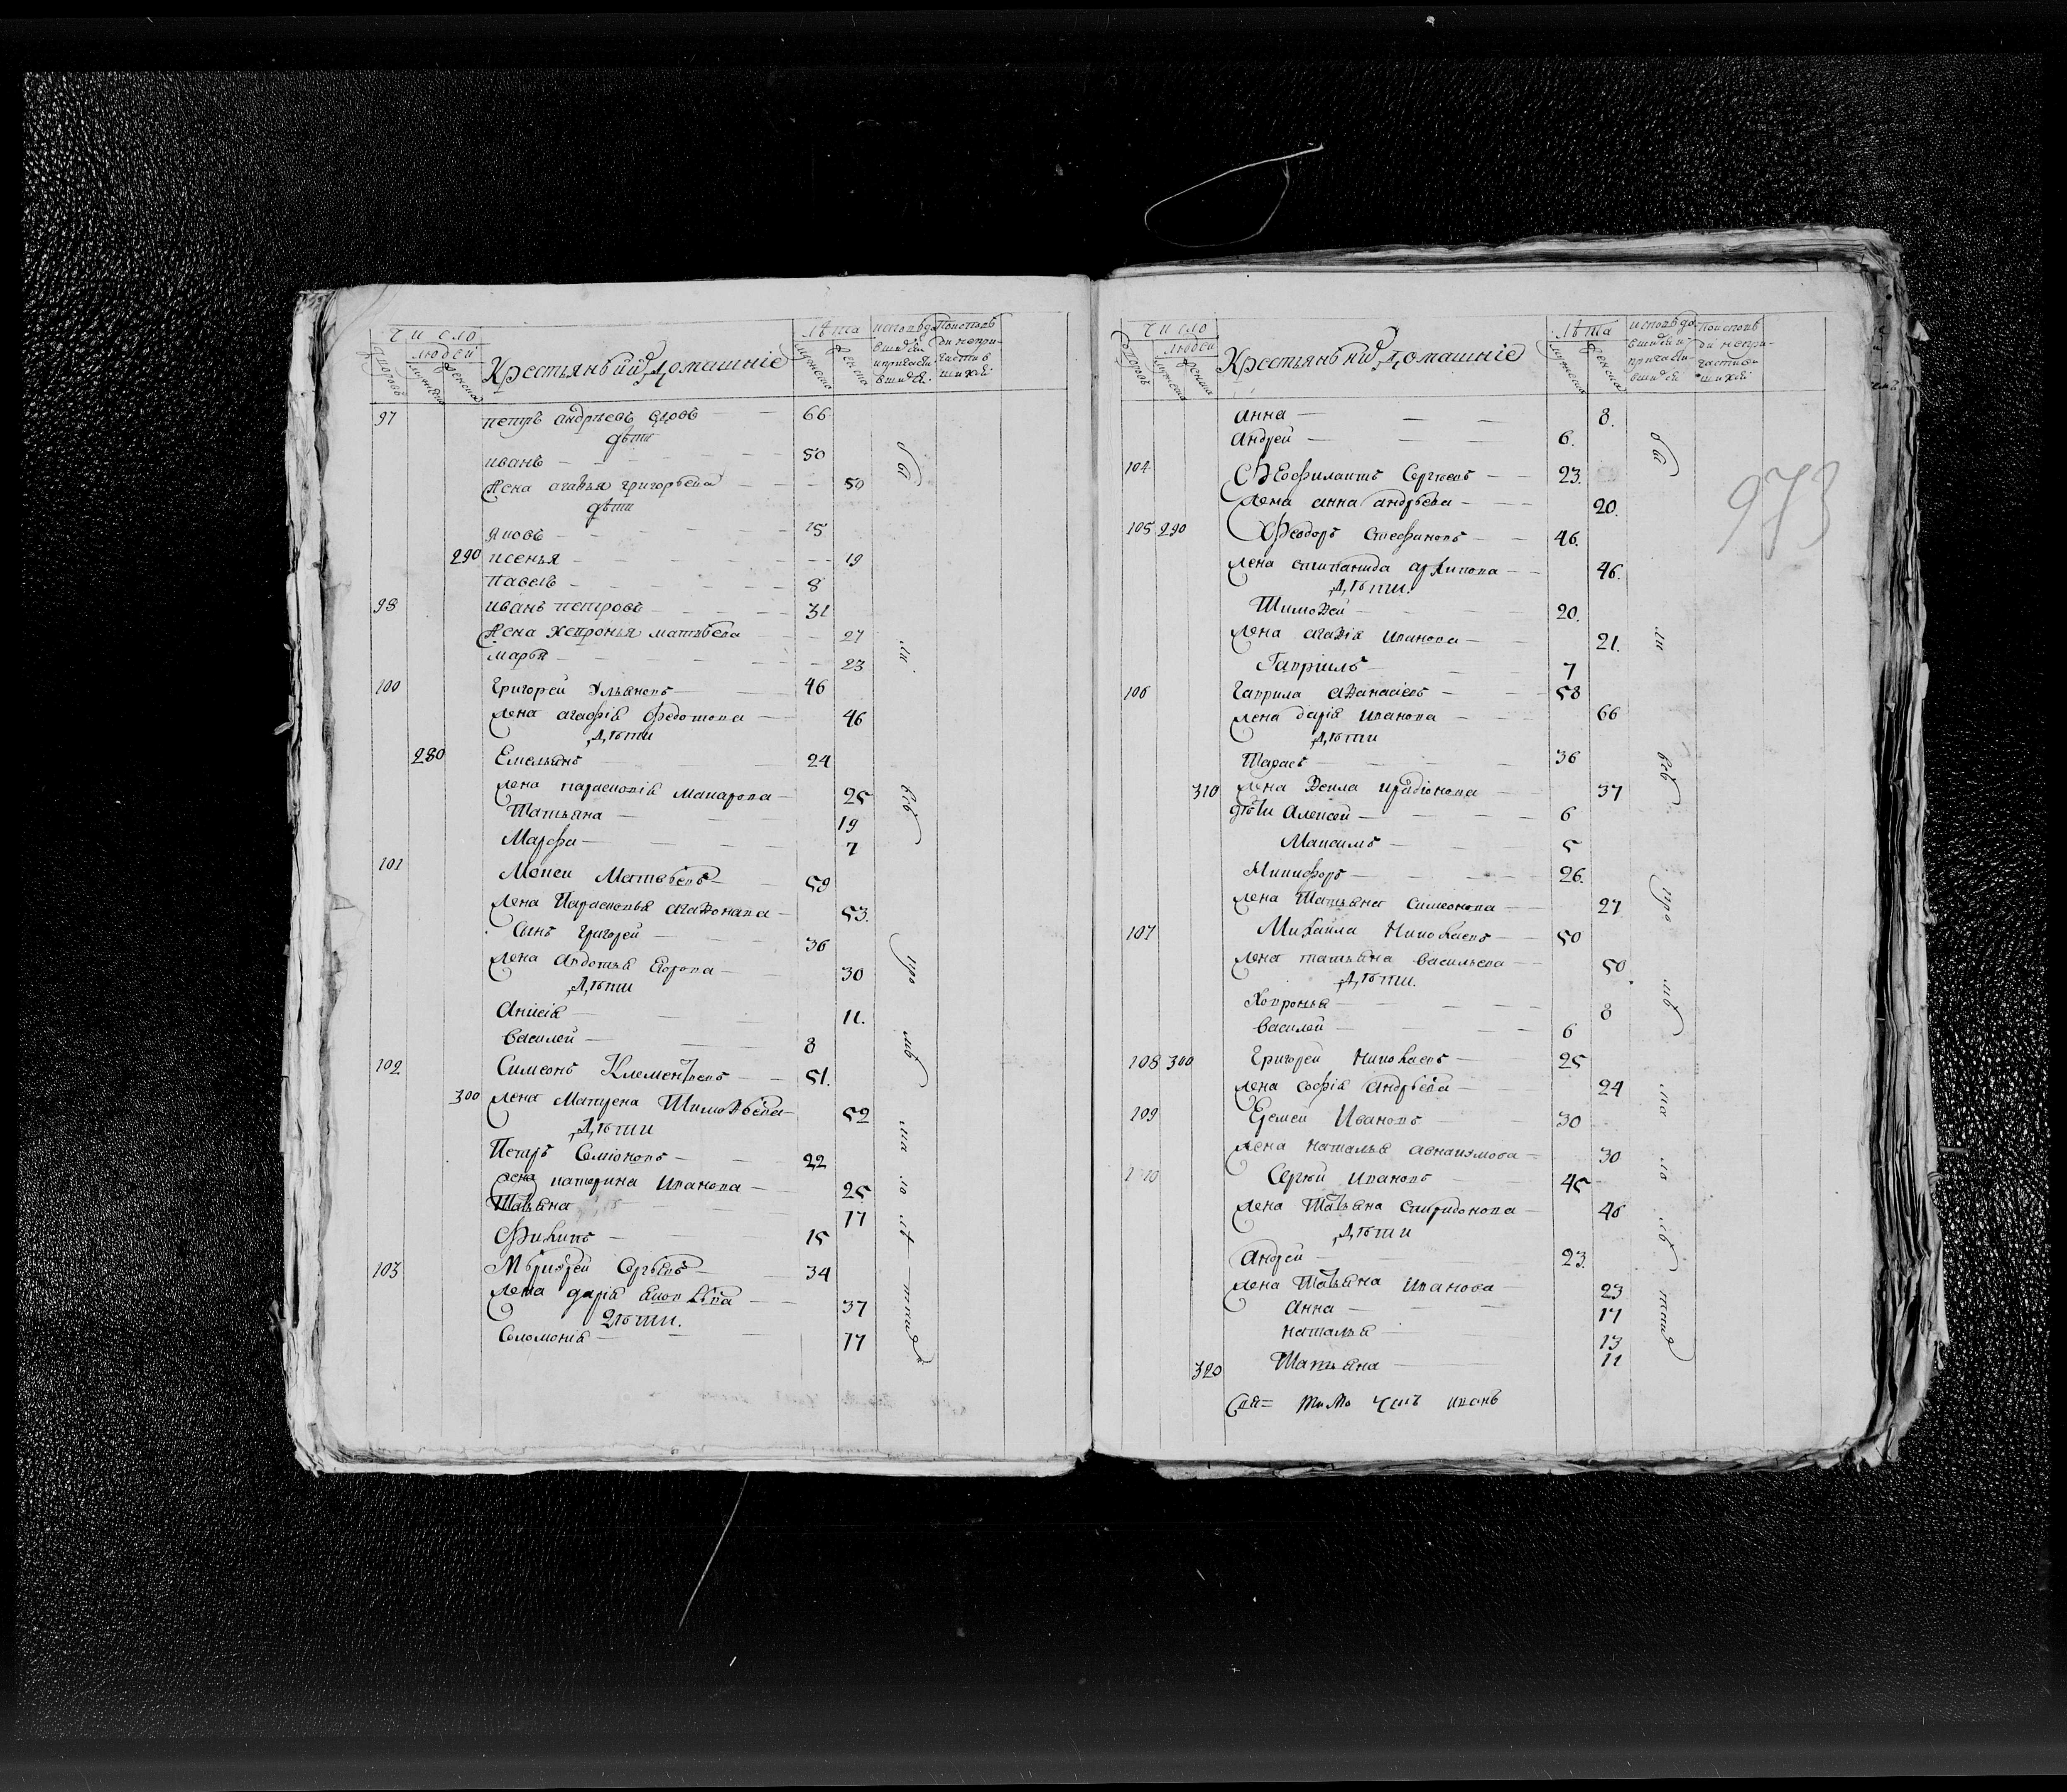 число
людей
дворовъ
мужеска
женска
Крестьянъ ихъ домашніе
лѣта
мужеска
женска
исповѣдавшихся и причастившихся
по исповѣди не причастившихся
97 петръ андрѣевъ вдовъ — 66
дѣти
иванъ — 50
жена агафья григорьева — 50
дѣти
яковъ — 15
290 ксенья — 19
павелъ — 8
98 иванъ петровъ — 31
жена хевронья матвѣева — 27
марья — 23
100 Григорей Ульяновъ — 46
жена агафія федотова — 46
дѣти
280 Емельянъ — 24
жена парасковія макарова — 25
Татьяна — 19
Марфа — 7
101 Моисей Матвѣевъ — 59
жена Парасковья агафонова — 53.
Сынъ григорей — 36
жена Авдотья Егорова — 30
дѣти
Анисія — 11.
василей — 8
102 Симеонъ Клементьевъ — 51.
300 жена Матрена Тимофѣева — 52
дѣти
Петръ Семіоновъ — 22
жена катерина Иванова — 25
Татьяна — 17
Филипъ — 15
103 Григорей Сергѣевъ — 34
жена дарія — 37
дѣти.
Соломонія — 17
о ни всѣ
число
людей
дворовъ
мужеска
женска
Крестьянъ ихъ домашніе
лѣта
мужеска
женска
исповѣдавшихся и причастившихся
по исповѣди не причастившихся
973
анна — 8.
андрей — 6.
104 Феофилактъ Сергѣевъ — 23.
жена анна андрѣева — 20.
105 290 Феодоръ Стефановъ — 46.
жена степанида архипова — 46.
дѣти.
Тимофей — 20.
жена агафія Иванова — 21.
Гавріилъ — 7
106 Гаврила афанасіевъ — 58
жена дарія иванова — 66
дѣти
Тарасъ — 36
310 жена Фекла ирадіонова — 37
дѣти Алексей — 6
Максимъ — 5
Никифоръ — 26.
жена Татьяна симеонова — 27
107 Михайла Николаевъ — 50
жена татьяна васильева — 50
дѣти.
Ховронья — 8
василей — 6
108 300 Григорей Николаевъ — 25
жена софія андрѣева — 24
109 Еремей Ивановъ — 30
жена наталья — 30
110 Сергѣй Ивановъ — 45
жена Татьяна спиридонова — 46
дѣти
андрей — 23.
жена Татьяна Иванова — 23
анна — 17
наталья — 13
320 Татьяна — 11
иванъ